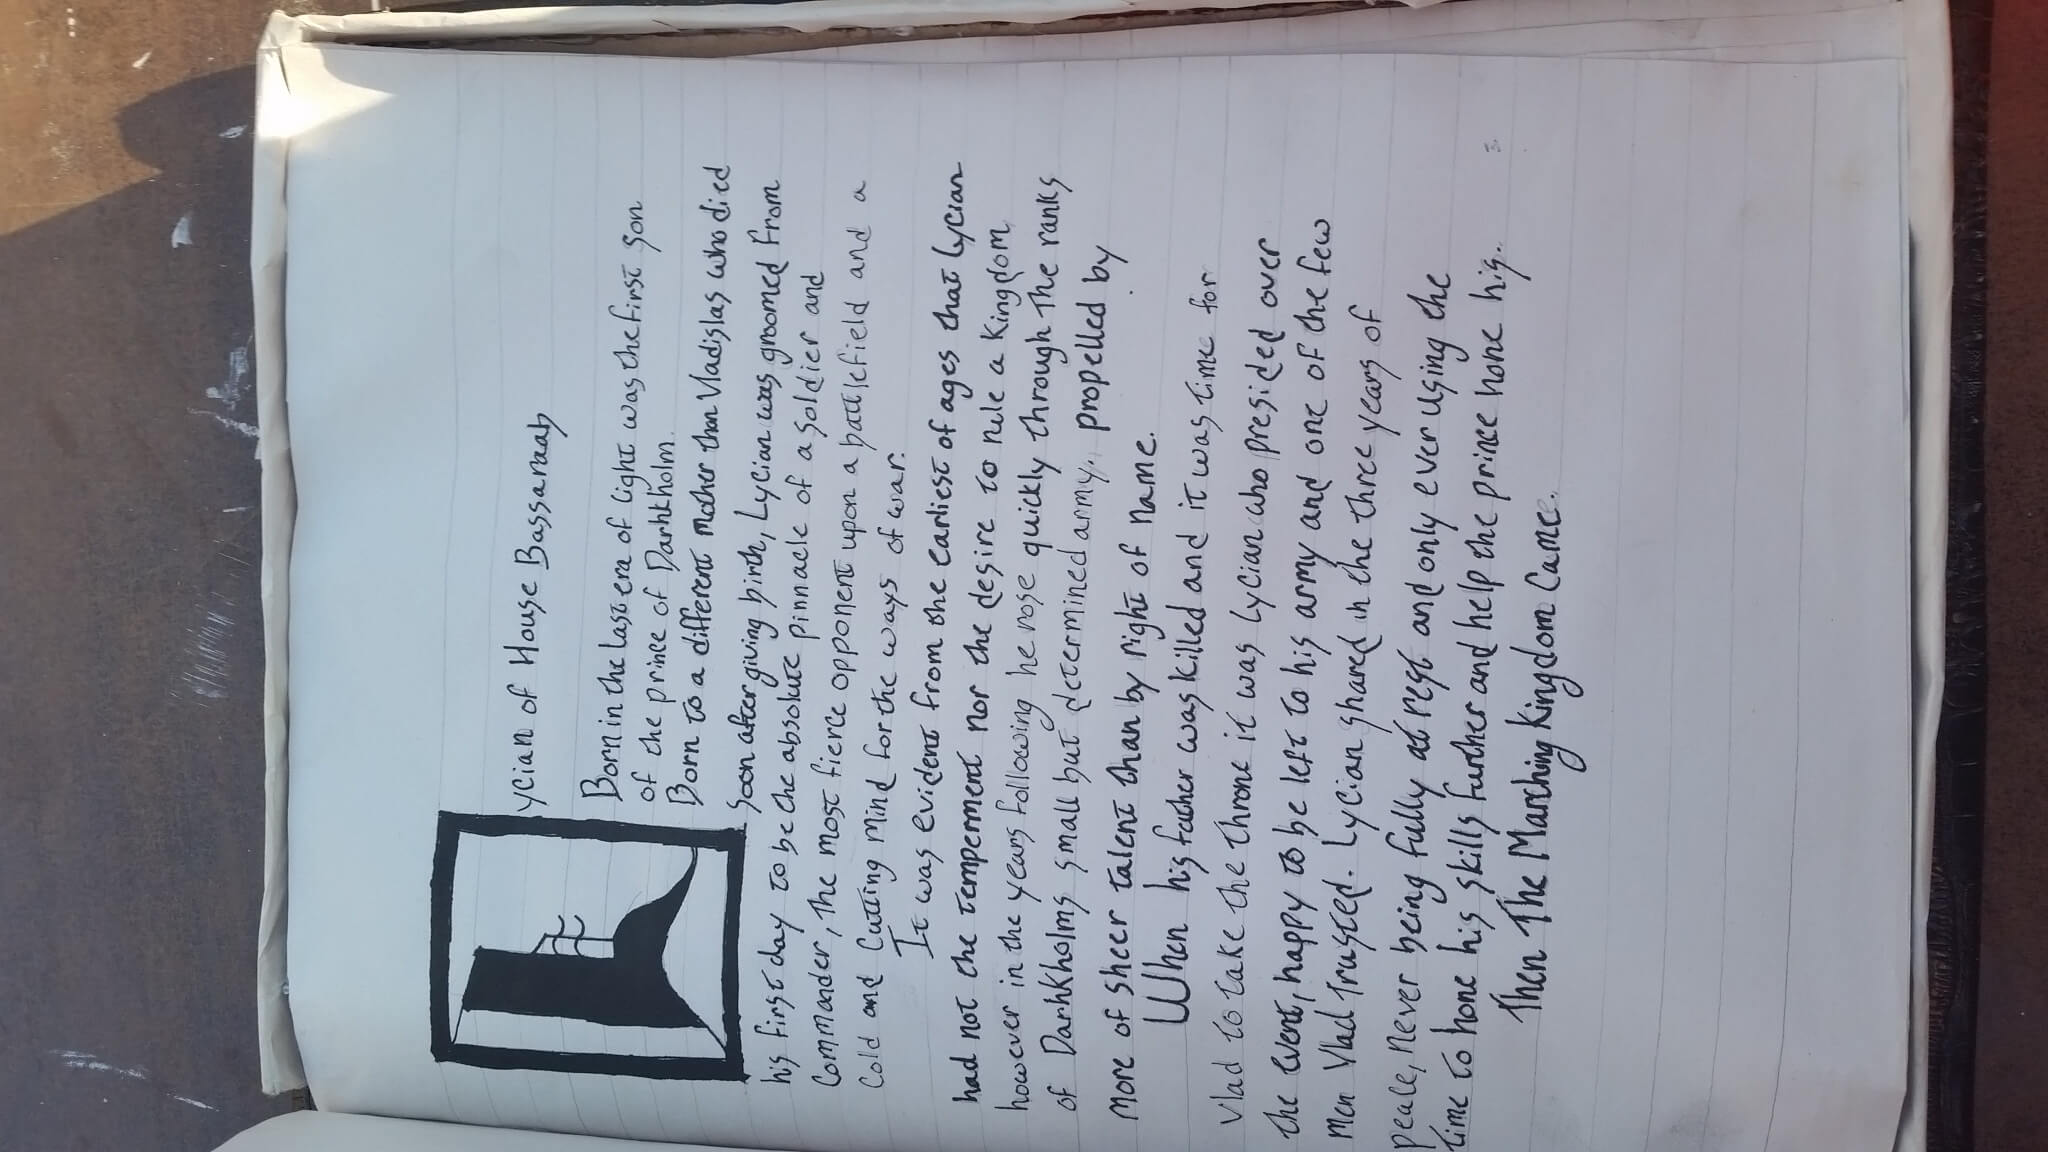 Lycian of House Bassaraab
Born in the last era of light was the first son
of the prince of Darhkholm.
Born to a different Mother than Vladislas who died
soon after giving birth, Lycian was groomed From
his first day to be the absolute pinnacle of a soldier and
Commander, the most fierce opponent upon a battlefield and a
Cold and Cutting Mind for the ways of war.
It was evident from the earliest of ages that Lycian
had not the temperment nor the desire to rule a Kingdom,
however in the years following he rose quickly through the ranks
of Darhkholms small but determined army, propelled by
More of sheer talent than by right of Name.
When his father was killed and it was time for
Vlad to take the throne it was Lycian who presided over
the event, happy to be left to his army and one of the few
Men Vlad trusted. Lycian shared in the three years of
peace, never being fully at rest and only ever using the
time to hone his skills further and help the prince hone his.
Then The Marching Kingdom Came.